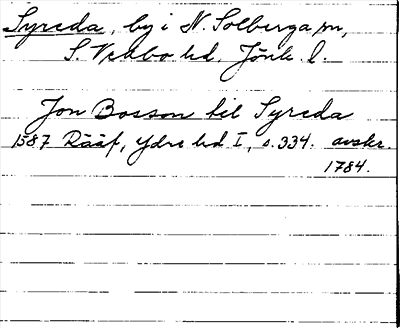 Syreda, by i N. Solberga sn,
S. Vedbo hd, Jönk. l.
Jon Bosson til Syreda
1587 Rääf, Ydre hd I, s. 334. avskr.
1784.